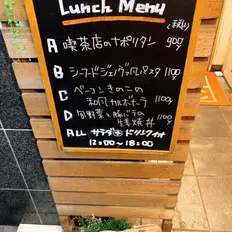 Lunch Menu
(税込)
A 喫茶店のナポリタン 900
B シーフードジェノヴァ風パスタ 1100
C ベーコンきのこの
和風カルボナーラ 1100
D 旬野菜と豚バラの
生姜焼丼
ALL サラダ ドリンク付
12:00~18:00